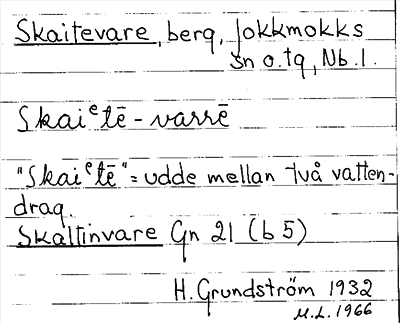 Skaitevare, berg, Jokkmokks
sn o. tg, Nb. l.
Skaiᵉtē - varrē
"Skaiᵉtē" = udde mellan två vatten-
drag.
Skaltinvare Gn 21 (b 5)
H. Grundström 1932
M.L. 1966